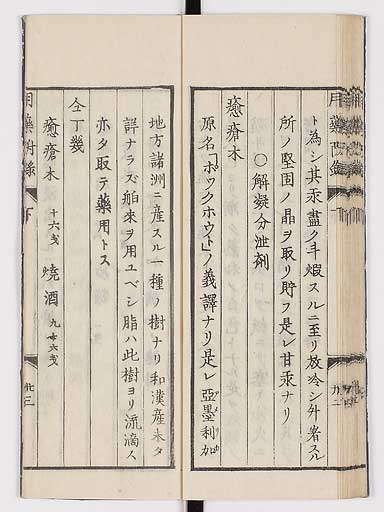 ト為シ其汞盡ク升煆スルニ至リ放冷シ外者スル
所ノ堅固ノ晶ヲ取リ貯フ是レ甘汞ナリ
〇解凝分泄剤
癒瘡木
原名「ポックホウト」ノ義譯ナリ是レ亞墨利加
地方諸洲ニ産スル一種ノ樹ナリ和漢産未タ
詳ナラズ舶来ヲ用ユベシ脂ハ此樹ヨリ流滴ス
亦タ取テ藥用トス
仝丁幾
癒瘡木 十六戔 焼酒 九十六戔
用藥附録 下
廿三